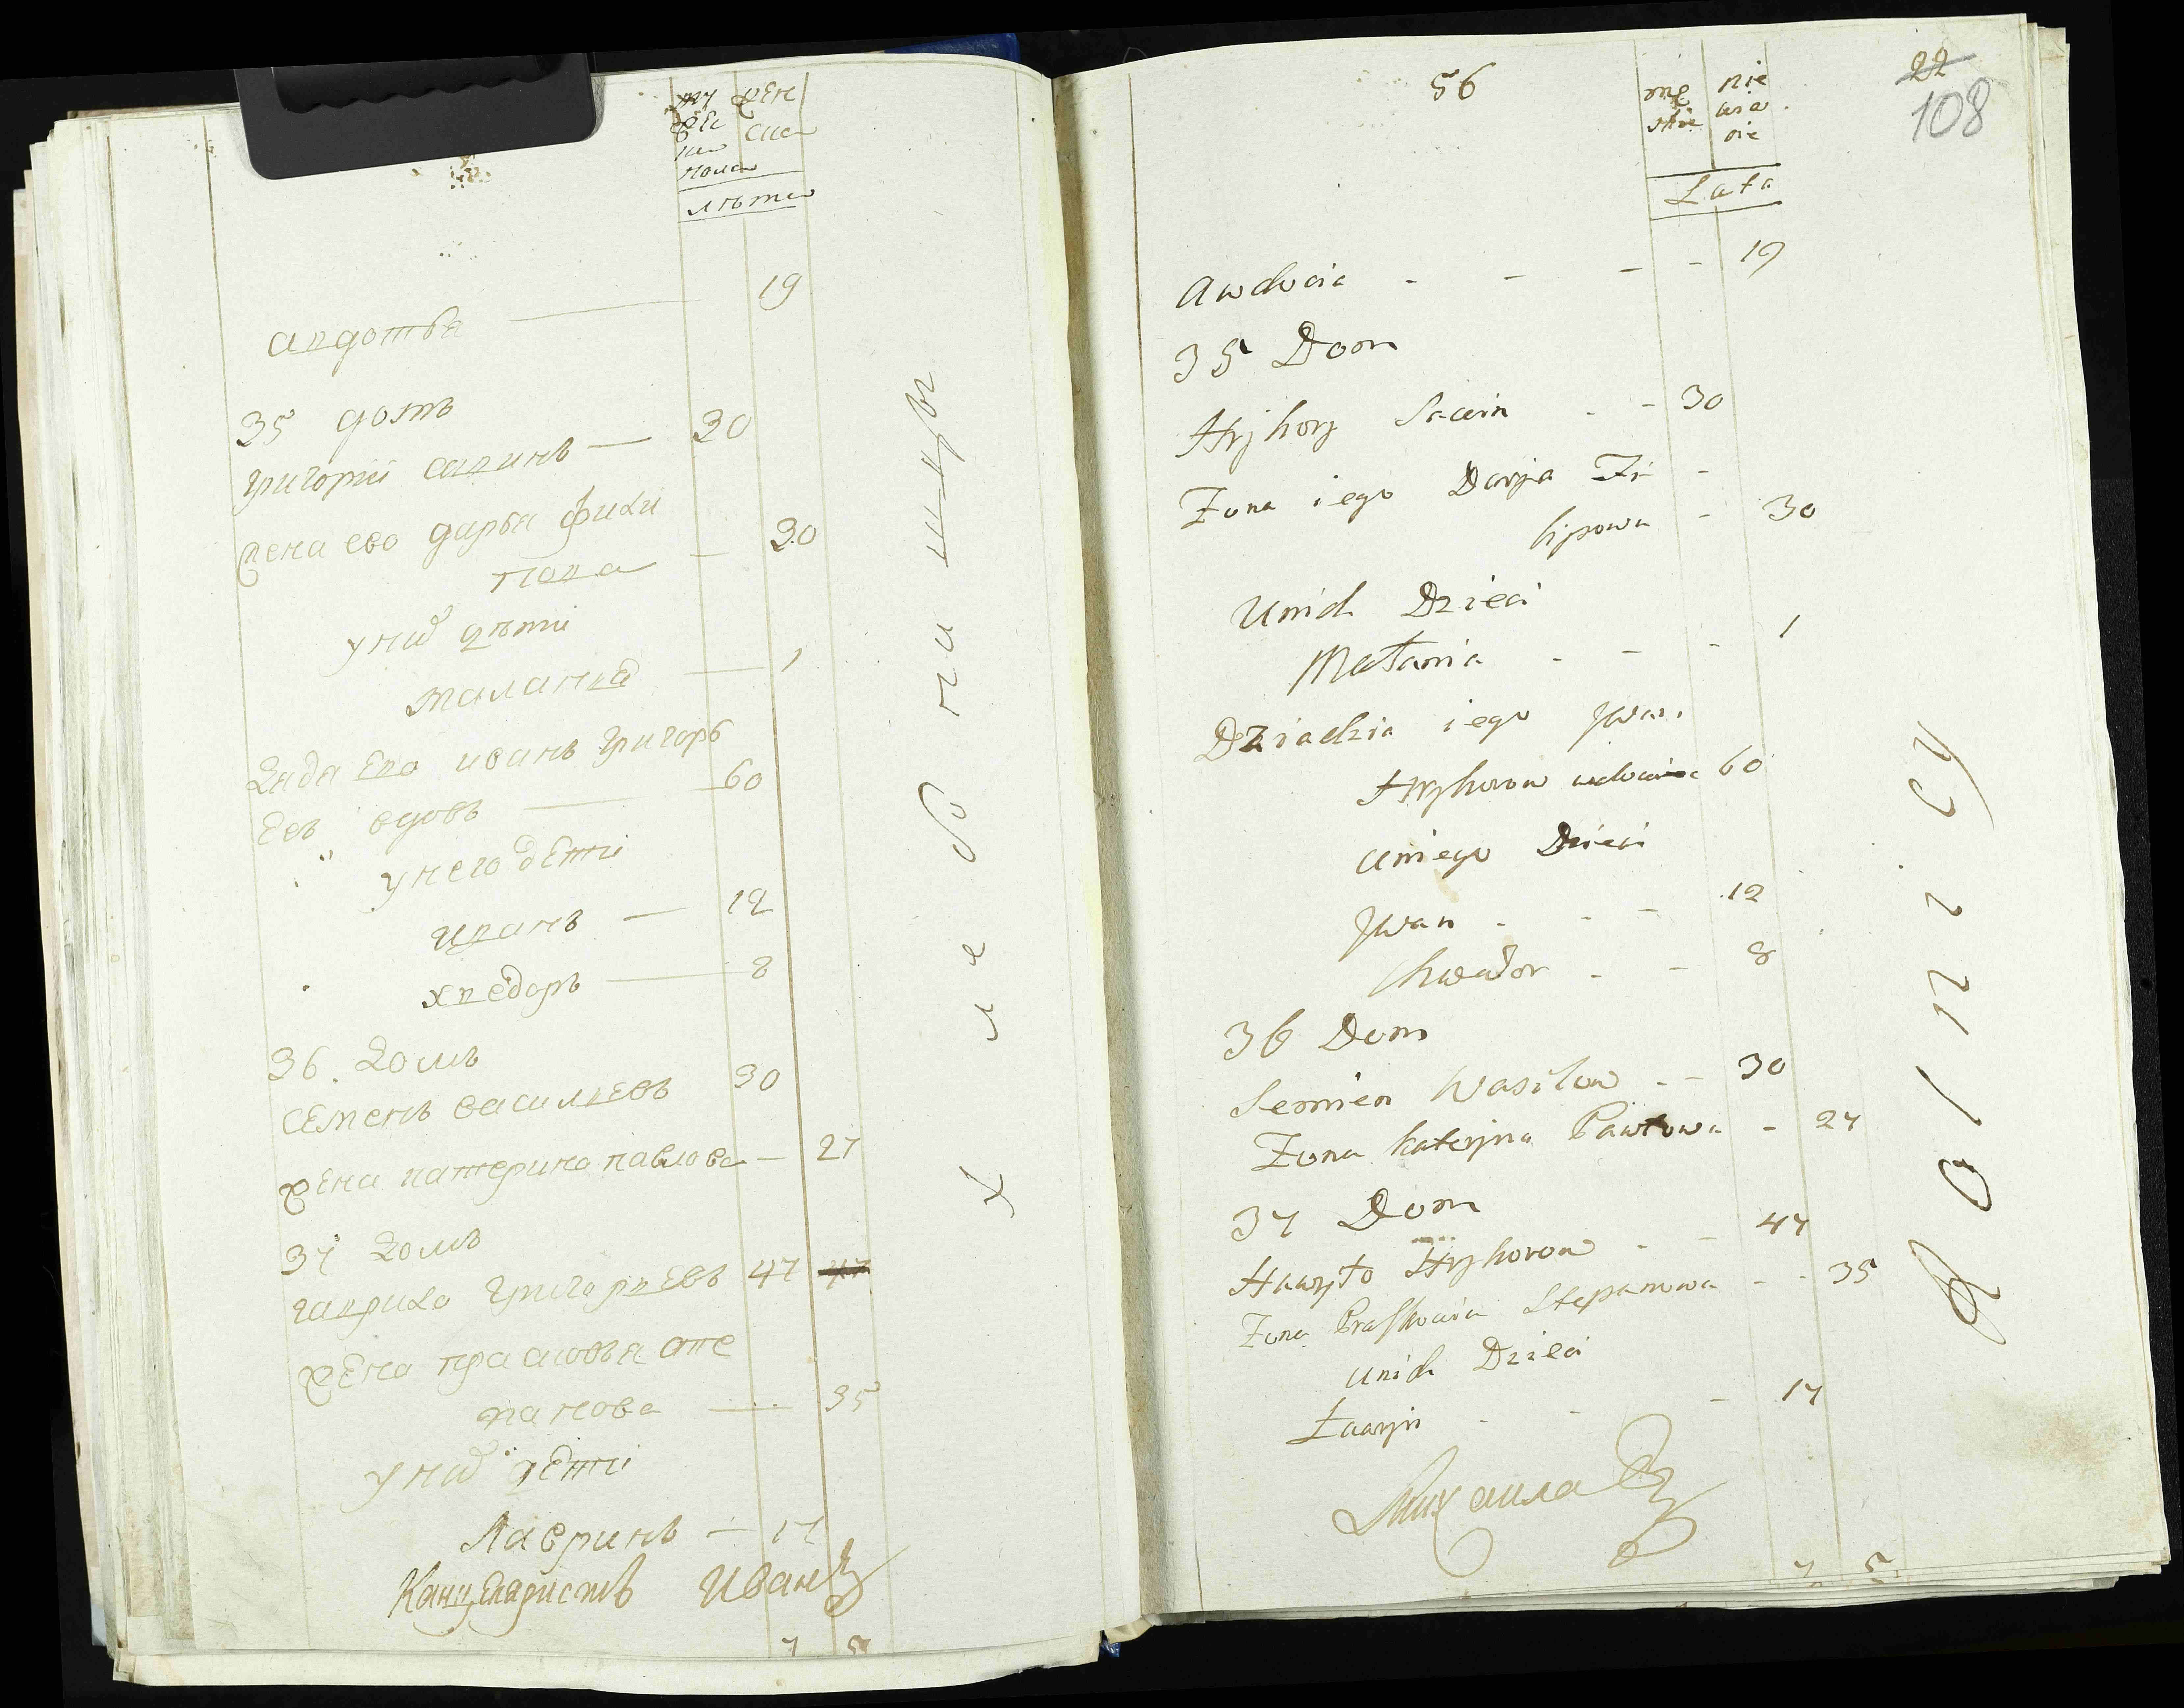 му
жес
ка
жен
ска
пола
лѣта
авдотья — 19
35 домъ
григорий савинъ — 30
жена ево дарья фили
пова — 30
у них дѣти
маланка — 1
дядя ево иванъ григорь
евъ вдовъ — 60
у него дети
иванъ — 12
хведоръ — 8
36. домъ
семенъ васильевъ 30
жена катерина павлова — 27
37 домъ
гаврило григорьевъ 47 47
жена прасковья сте
панова — 35
у них дети
Лавринъ — 17
Канцеляристъ Иванъ
7 5
х л е б п и н ц ы
56
22
108
mę
skie
nie
wia
sie
Lata
Awdocia - - - - 19
35 Dom
Hryhory Sawin - - 30
Żona iego Darya Fi -
lipowa - 30
Unich Dzieci
Małania - - - 1
Dziadzia iego Jwan
Hryhorow wdowiec 60
Uniego Dzieci
Jwan - - - 12
Chwedor - - 8
36 Dom
Semien Wasilow - - 30
Żona Kateryna Pawłowa - 27
37 Dom
Hawryło Hryhorow - - 47
Żona Praskowia Stepanowa - - 35
Unich Dzieci
Ławryn - - - 17
Михаила
7 5